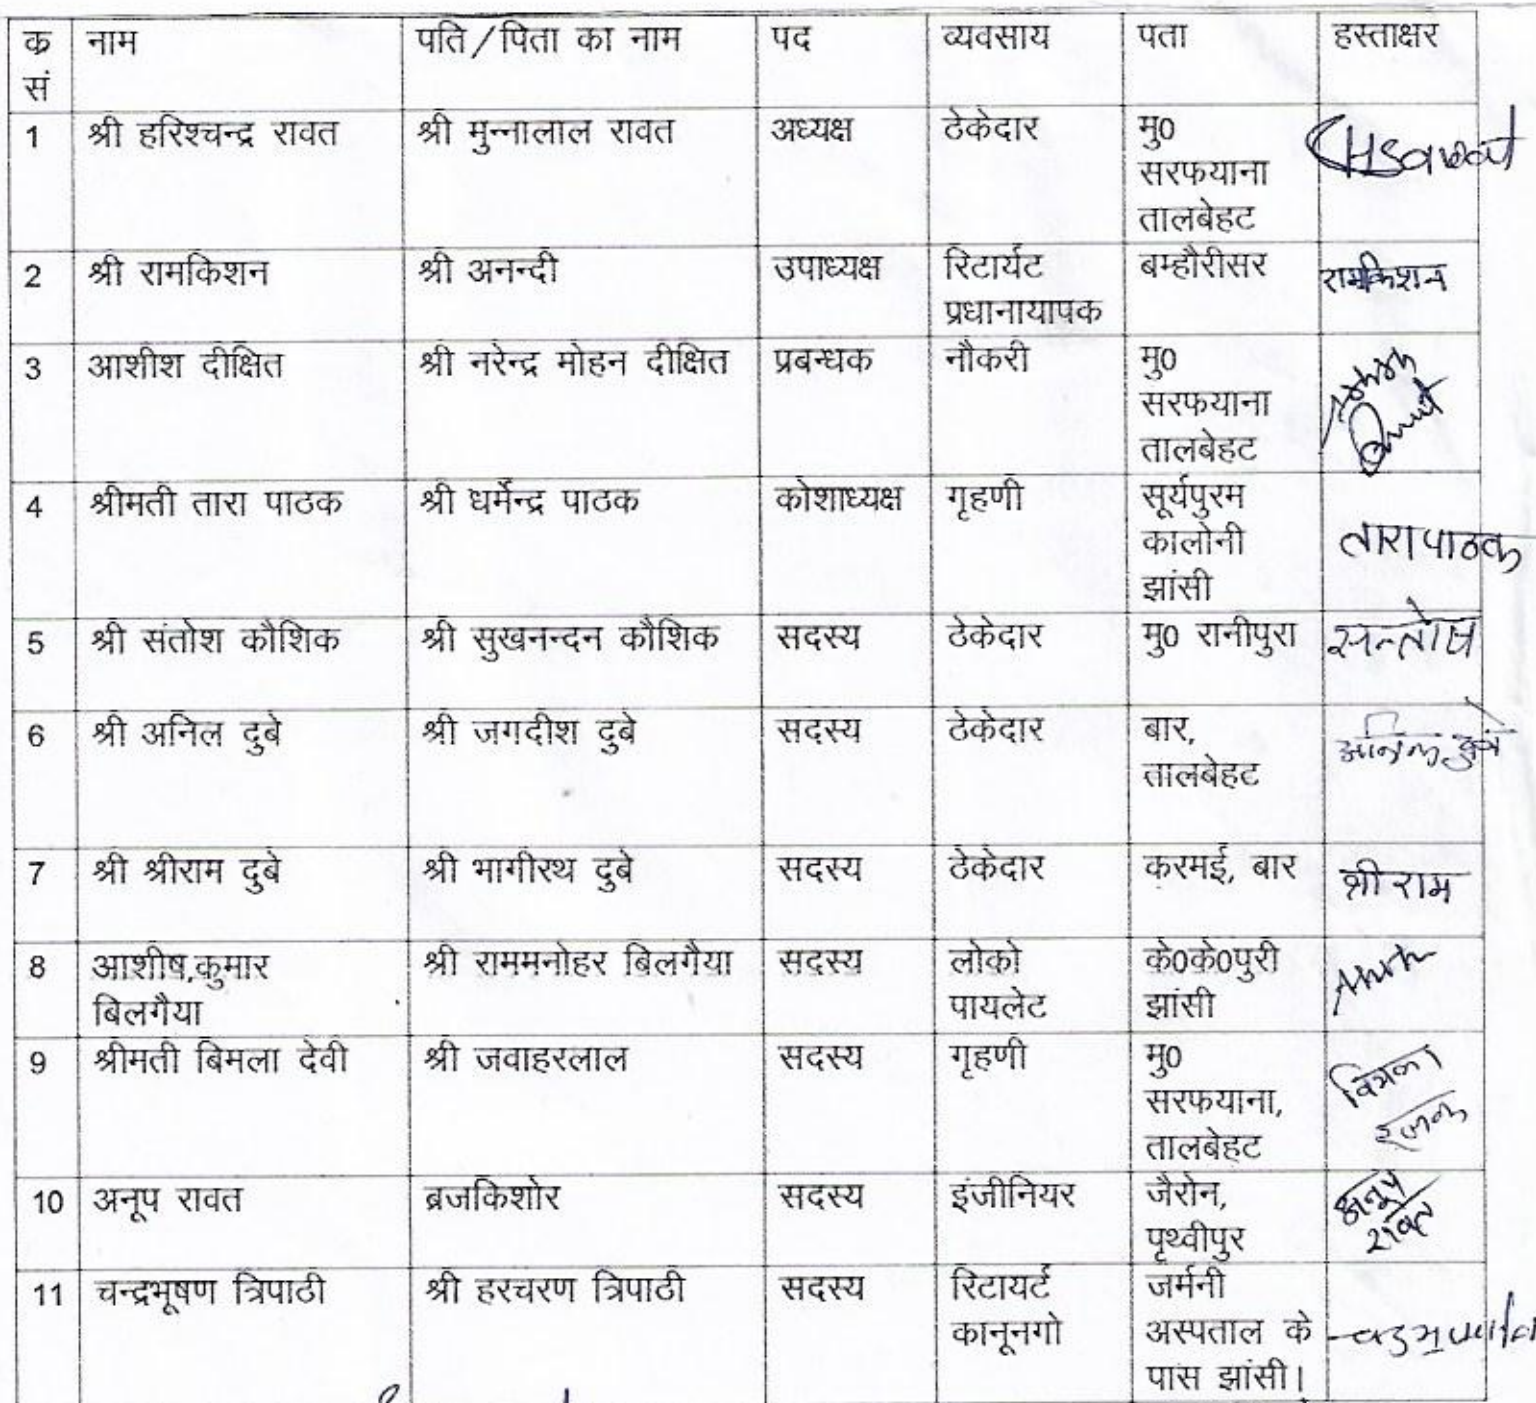 क सं नाम पति/पिता का नाम पद व्यवसाय पता हस्ताक्षर
1 श्री हरिश्चन्द्र रावत श्री मुन्नालाल रावत अध्यक्ष ठेकेदार मु0
सरफयाना
तालबेहट
2 श्री रामकिशन श्री अनन्दी उपाध्यक्ष रिटार्यट बम्हौरीसर रामकिशन
प्रधानायापक
3 आशीश दीक्षित श्री नरेन्द्र मोहन दीक्षित प्रबन्धक नौकरी मु0
सरफयाना
तालबेहट
4 श्रीमती तारा पाठक श्री धर्मेन्द्र पाठक कोशाध्यक्ष गृहणी सूर्यपुरम
कालोनी तारा पाठक
झांसी
5 श्री संतोश कौशिक श्री सुखनन्दन कौशिक सदस्य ठेकेदार मु0 रानीपुरा सन्तोष
6 श्री अनिल दुबे श्री जगदीश दुबे सदस्य ठेकेदार बार, अनिल दुबे
तालबेहट
7 श्री श्रीराम दुबे श्री भागीरथ दुबे सदस्य ठेकेदार करमई, बार श्री राम
8 आशीष,कुमार श्री राममनोहर बिलगैया सदस्य लोको के0के0पुरी
बिलगैया पायलेट झांसी
9 श्रीमती बिमला देवी श्री जवाहरलाल सदस्य गृहणी मु0
सरफयाना,
तालबेहट
10 अनूप रावत ब्रजकिशोर सदस्य इंजीनियर जैरोन, अनूप
पृथ्वीपुर रावत
11 चन्द्रभूषण त्रिपाठी श्री हरचरण त्रिपाठी सदस्य रिटायर्ट जर्मनी
कानूनगो अस्पताल के
पास झांसी।